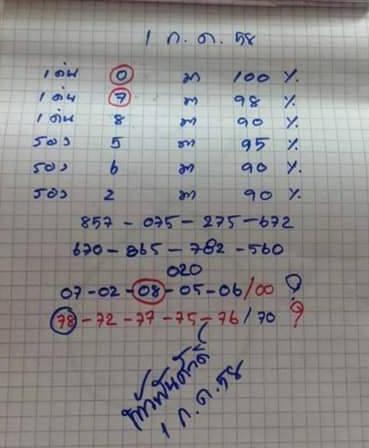 1 ก.ค. 58
เด่น 0 มา 100 %
เด่น 7 มา 98 %
เด่น 8 มา 90 %
รอง 5 มา 95 %
รอง 6 มา 90 %
รอง 2 มา 90 %
857 - 075 - 275 - 672
670 - 865 - 782 - 560
020
07 - 02 - 08 - 05 - 06 / 00 ?
78 - 72 - 77 - 75 - 76 / 70 ?
1 ก.ค. 58